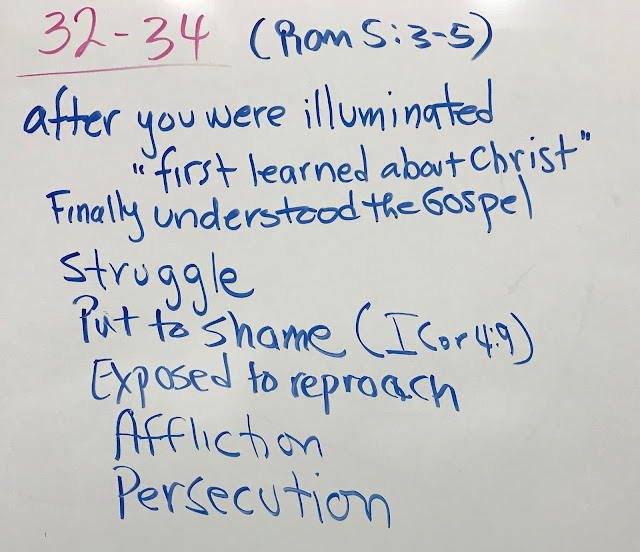 32-34 (Rom 5:3-5)
after you were illuminated
"first learned about Christ"
Finally understood the Gospel
Struggle
Put to shame (I Cor 4:9)
Exposed to reproach
Affliction
Persecution